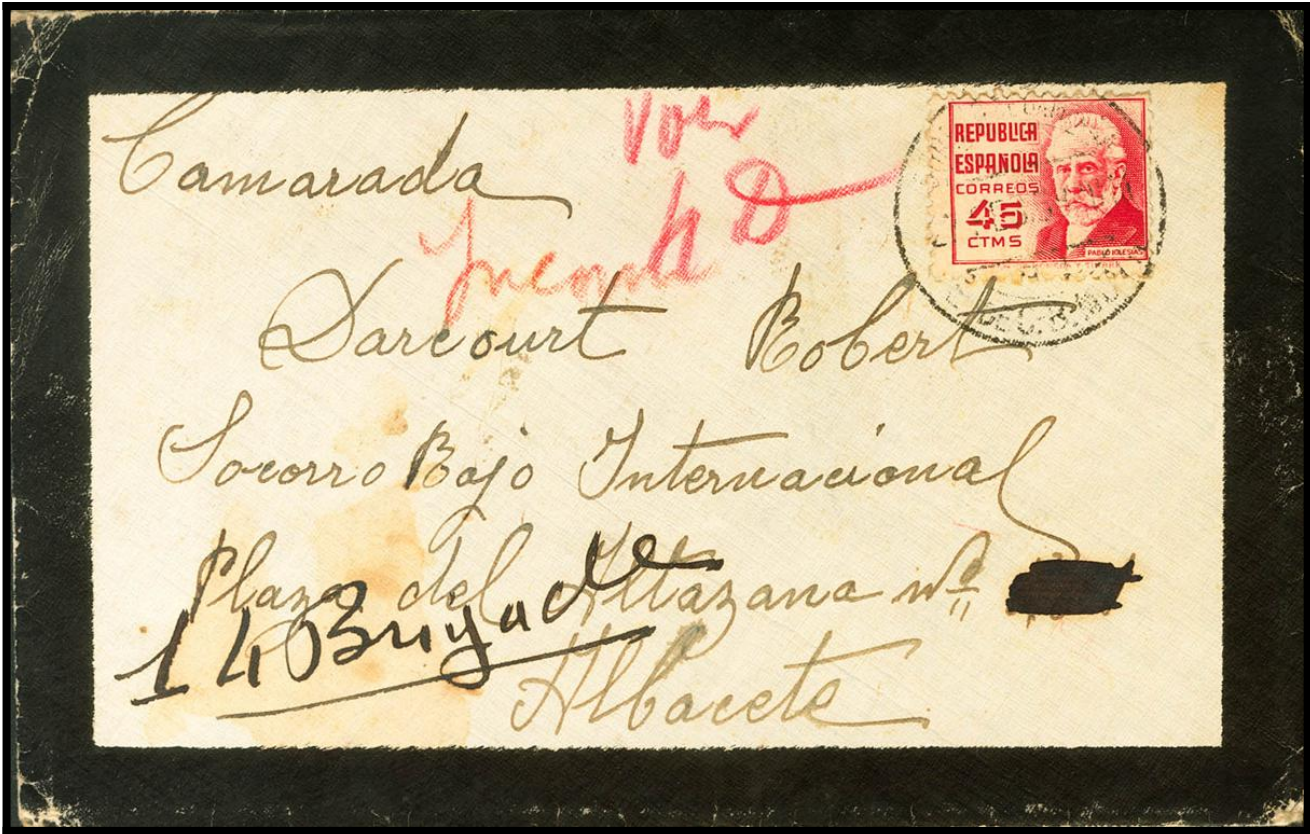 Camarada
Voir
REPUBLICA
ESPAÑOLA
CORREOS
45
CTMS
PABLO IGLESIAS
Darcourt Robert
Socorro Rojo Internacional
Plaza del Altazana nº
14 Brigade
Albacete